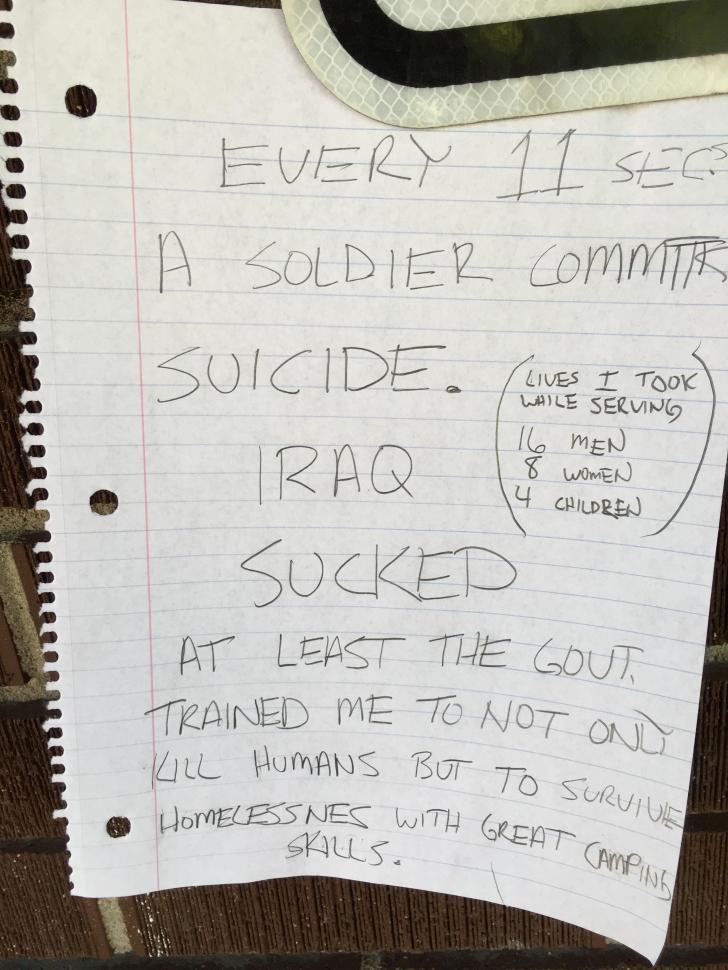 EVERY 11 SECS
A SOLDIER COMMITS
SUICIDE.
(LIVES I TOOK
WHILE SERVING
16 MEN
8 WOMEN
4 CHILDREN)
IRAQ
SUCKED
AT LEAST THE GOVT.
TRAINED ME TO NOT ONLY
KILL HUMANS BUT TO SURVIVE
HOMELESSNES WITH GREAT CAMPING
SKILLS.